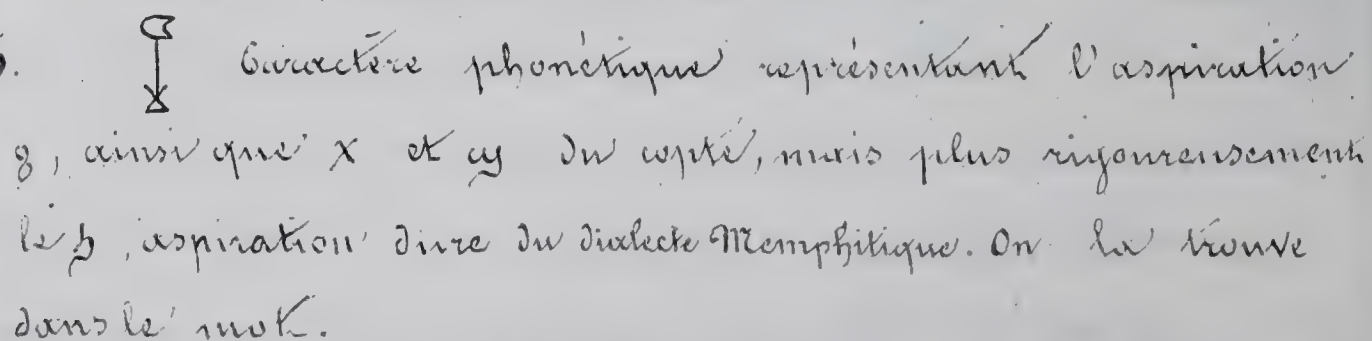 𓆼 Caractère phonétique représentant l'aspiration
ϩ, ainsi que χ et ϣ du copte, mais plus rigoureusement
le ϧ, aspiration dure du dialecte Memphitique. On la trouve
dans le mot.